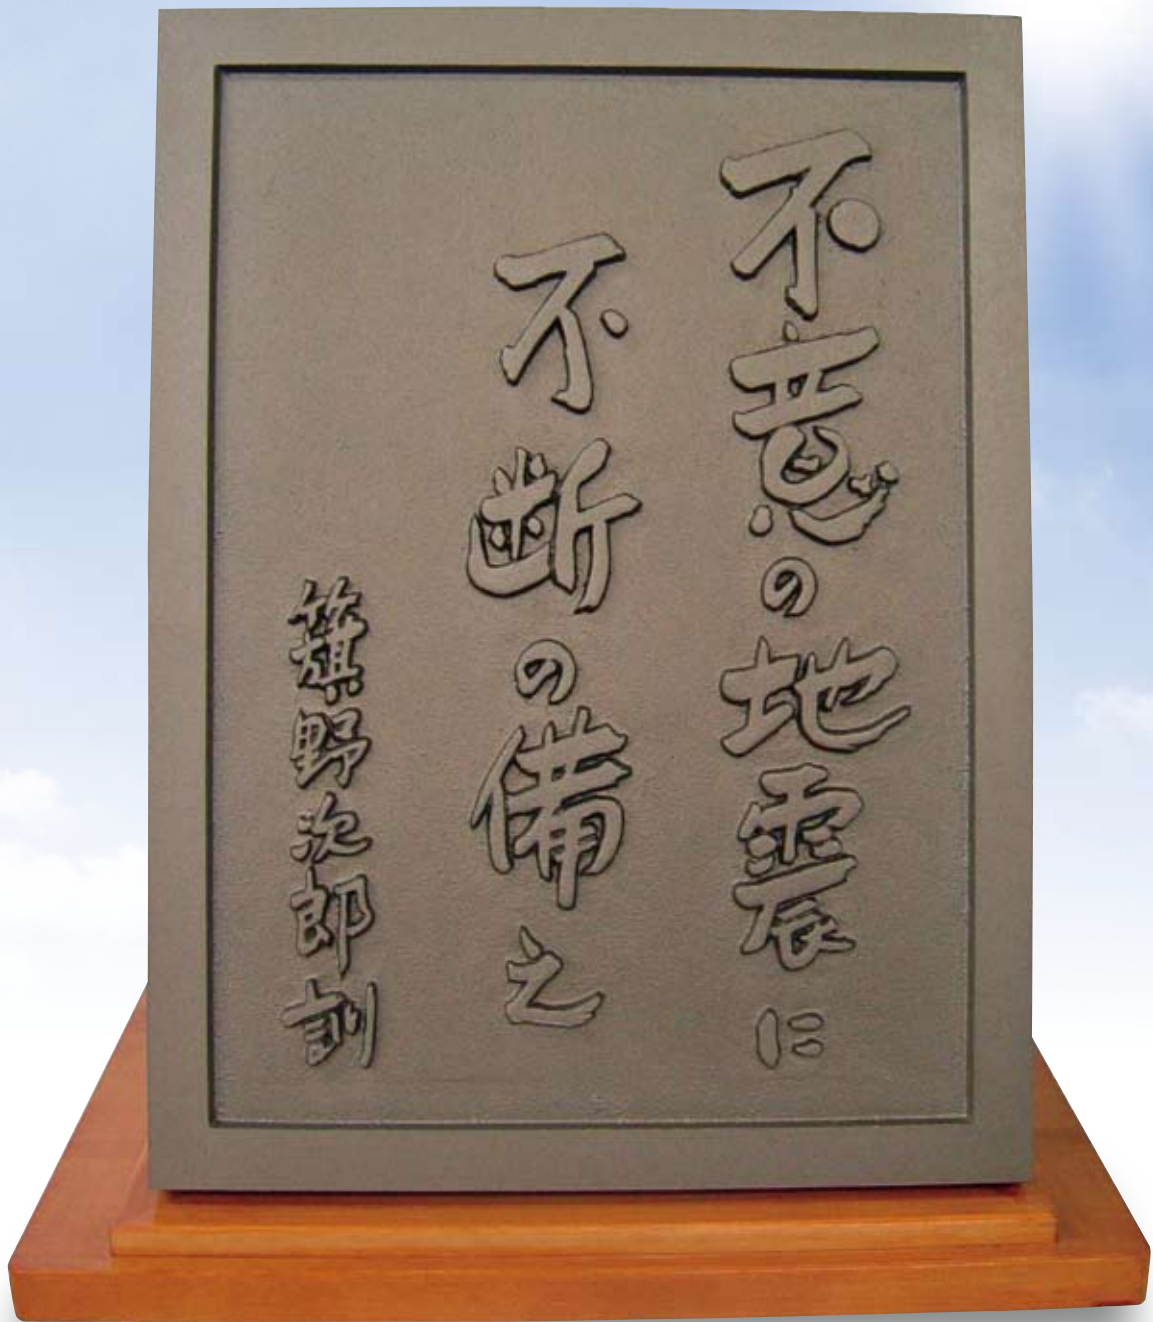 不意の地震に
不断の備え
籏野次郎訓